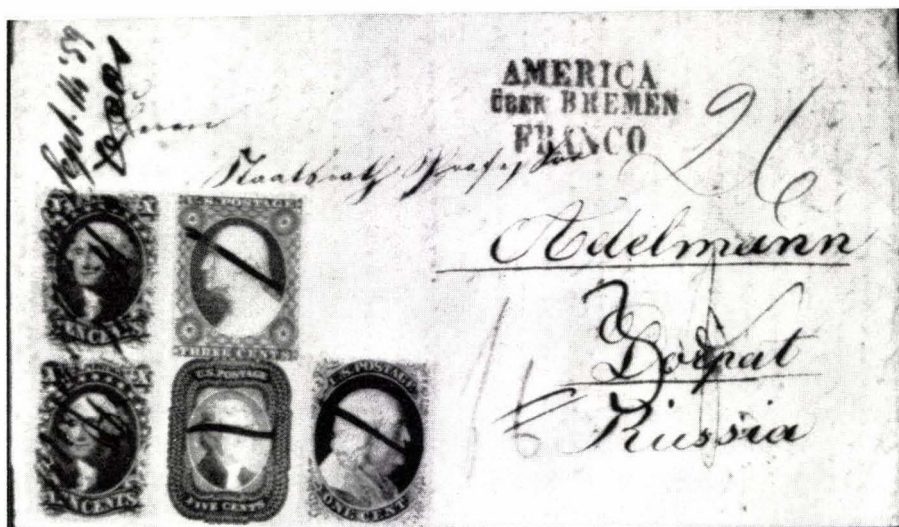 Sept. 14 '59
AMERICA
ÜBER BREMEN
FRANCO
26
Staatsrath Professor
Adelmann
Dorpat
Russia
X X
TEN CENTS
U.S. POSTAGE
THREE CENTS
X X
TEN CENTS
U.S. POSTAGE
FIVE CENTS
U.S. POSTAGE
ONE CENT